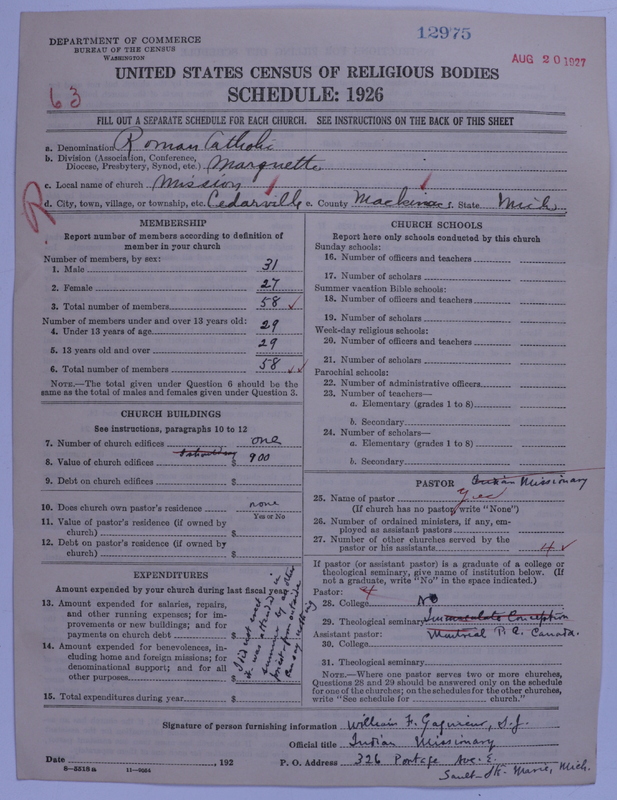 12975
DEPARTMENT OF COMMERCE
BUREAU OF THE CENSUS
WASHINGTON
AUG 20 1927
UNITED STATES CENSUS OF RELIGIOUS BODIES
SCHEDULE: 1926
63
FILL OUT A SEPARATE SCHEDULE FOR EACH CHURCH. SEE INSTRUCTIONS ON THE BACK OF THIS SHEET
a. Denomination Roman Catholic
b. Division (Association, Conference,
Diocese, Presbytery, Synod, etc.) Marquette
c. Local name of church Mission
d. City, town, village, or township, etc. Cedarville e. County Mackinac f. State Mich
R
MEMBERSHIP
Report number of members according to definition of
member in your church
Number of members, by sex:
1. Male 31
2. Female 27
3. Total number of members 58 ✓
Number of members under and over 13 years old:
4. Under 13 years of age 29
5. 13 years old and over 29
6. Total number of members 58 ✓✓
NOTE.—The total given under Question 6 should be the
same as the total of males and females given under Question 3.
CHURCH BUILDINGS
See instructions, paragraphs 10 to 12
7. Number of church edifices one
8. Value of church edifices $ 900
9. Debt on church edifices $
10. Does church own pastor's residence none
Yes or No
11. Value of pastor's residence (if owned by
church) $
12. Debt on pastor's residence (if owned by
church) $
EXPENDITURES
Amount expended by your church during last fiscal year
13. Amount expended for salaries, repairs,
and other running expenses; for im-
provements or new buildings; and for
payments on church debt $
14. Amount expended for benevolences, in-
cluding home and foreign missions; for
denominational support; and for all
other purposes $
15. Total expenditures during year $
it was attended in
summer by an other
priest from outside
CHURCH SCHOOLS
Report here only schools conducted by this church
Sunday schools:
16. Number of officers and teachers
17. Number of scholars
Summer vacation Bible schools:
18. Number of officers and teachers
19. Number of scholars
Week-day religious schools:
20. Number of officers and teachers
21. Number of scholars
Parochial schools:
22. Number of administrative officers
23. Number of teachers—
a. Elementary (grades 1 to 8)
b. Secondary
24. Number of scholars—
a. Elementary (grades 1 to 8)
b. Secondary
PASTOR Indian Missionary
25. Name of pastor yes
(If church has no pastor, write "None")
26. Number of ordained ministers, if any, em-
ployed as assistant pastors
27. Number of other churches served by the
pastor or his assistants 4 ✓
If pastor (or assistant pastor) is a graduate of a college or
theological seminary, give name of institution below. (If
not a graduate, write "No" in the space indicated.)
Pastor:
28. College No
29. Theological seminary Immaculate Conception
Assistant pastor: Montreal P. Q. Canada.
30. College
31. Theological seminary
NOTE.—Where one pastor serves two or more churches,
Questions 28 and 29 should be answered only on the schedule
for one of the churches; on the schedules for the other churches,
write "See schedule for church."
Signature of person furnishing information William F. Gagnieur, S.J.
Official title Indian Missionary
Date , 192 P. O. Address 326 Portage Ave. E.
Sault-Ste. Marie, Mich.
8—5518a 11—9064